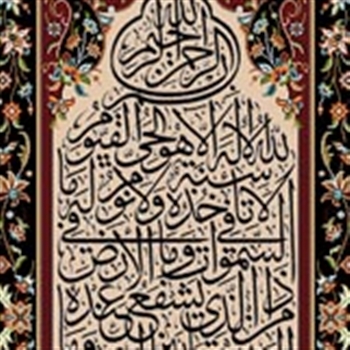 بسم الله الرحمن الرحيم
الله لا اله الا هو الحي القيوم
لا تاخذه سنة ولا نوم له ما
في السموات وما في الارض
من ذا الذي يشفع عنده